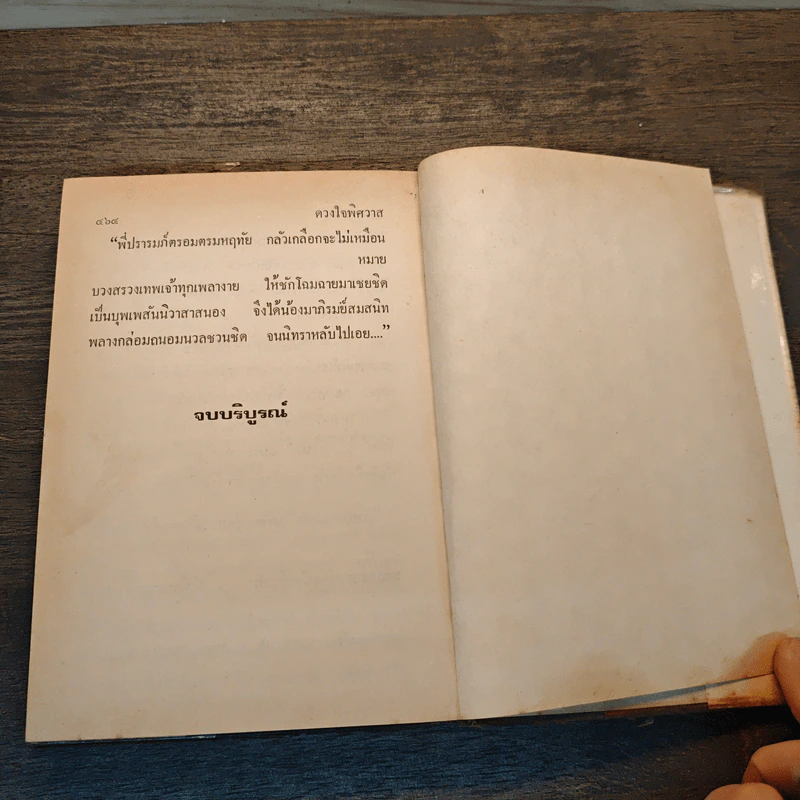 ๔๖๔ ดวงใจพิศวาส
“พี่ปรารมภ์ตรอมตรมหฤทัย กลัวเกลือกจะไม่เหมือน
หมาย
บวงสรวงเทพเจ้าทุกเพลางาย ให้ชักโฉมฉายมาเชยชิด
เป็นบุพเพสันนิวาสาสนอง จึงได้น้องมาภิรมย์สมสนิท
พลางกล่อมถนอมนวลชวนชิด จนนิทราหลับไปเอย....”
จบบริบูรณ์